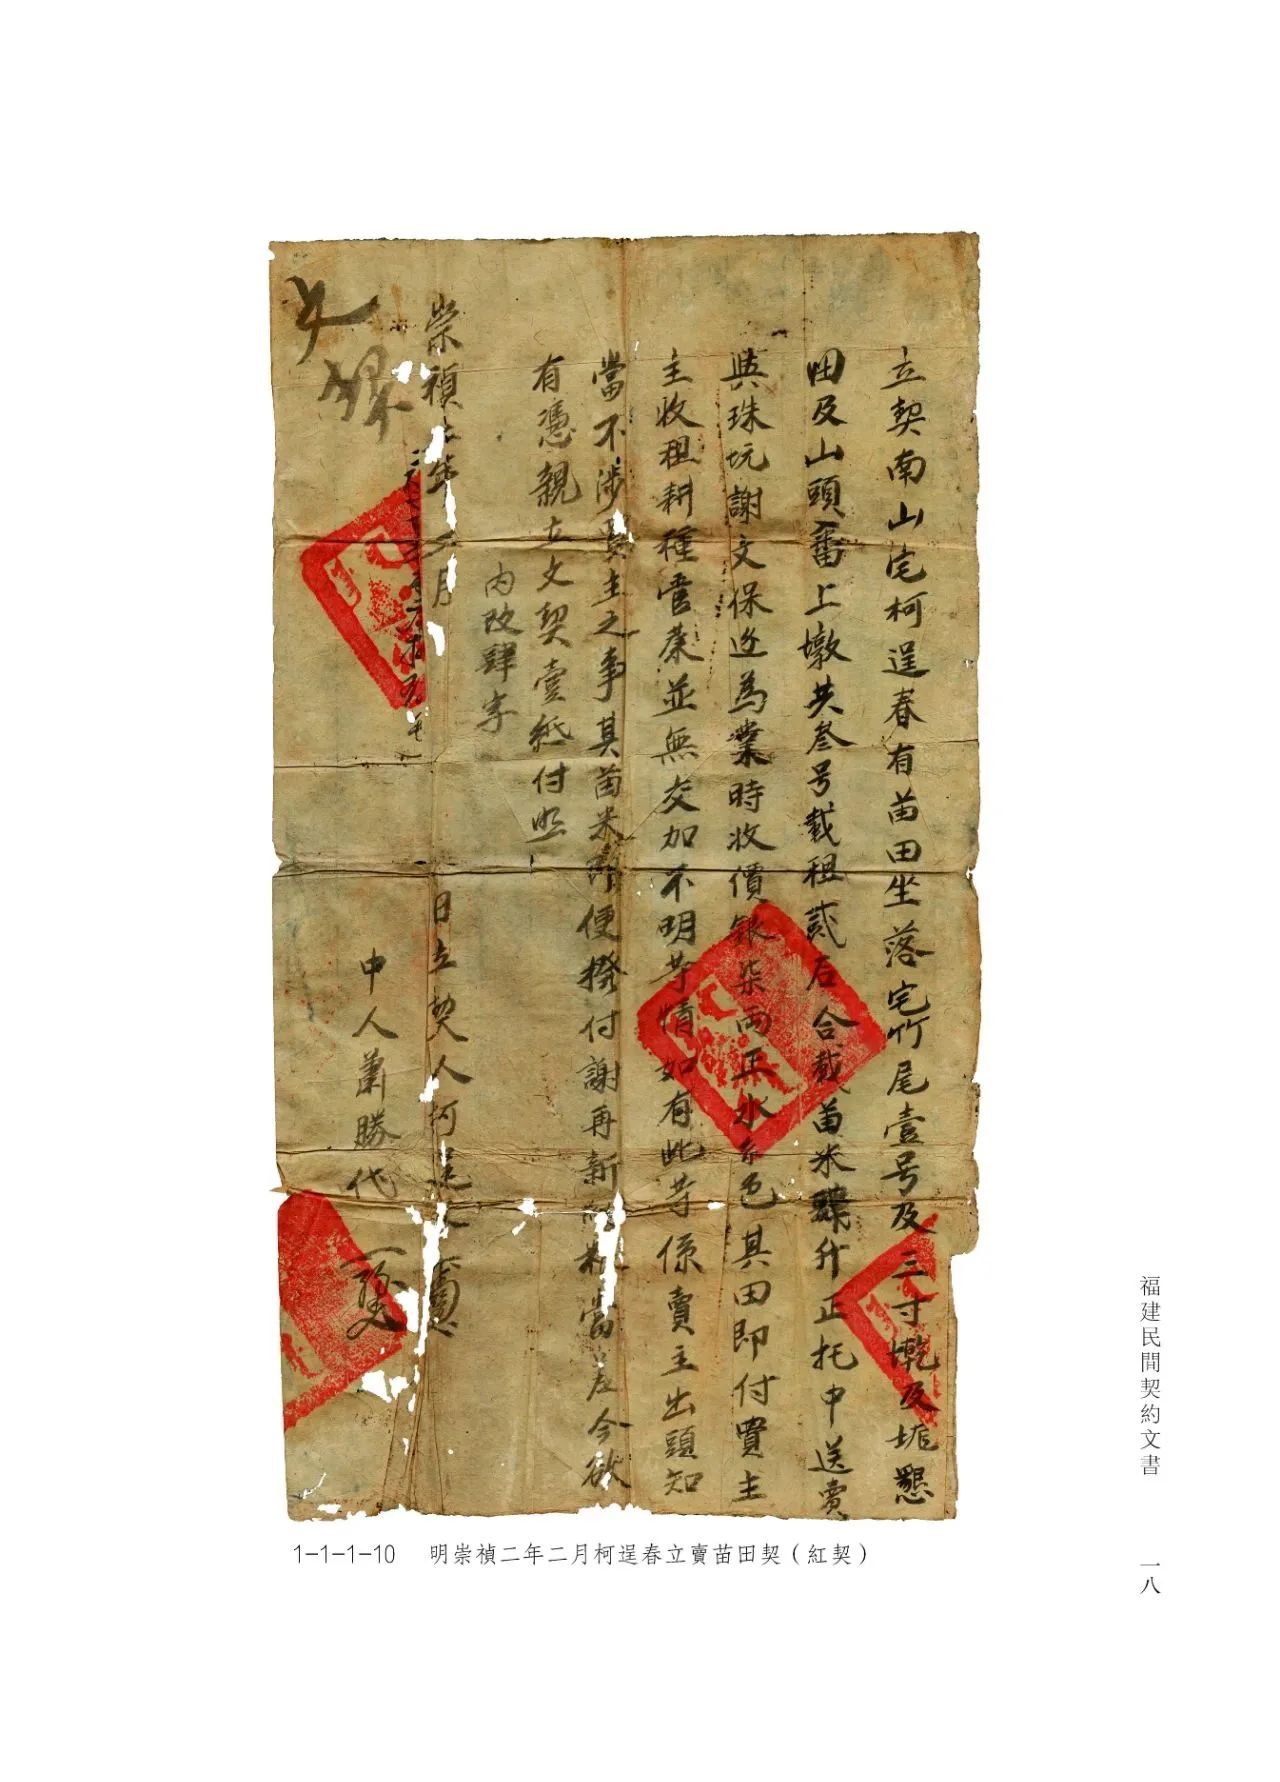 立契南山宅柯逞春有苗田坐落宅竹尾壹号及三寸墘及垢懇
田及山頭番上墩共叁号載租貳石合載苗米肆升正托中送賣
與珠坑謝文保近為業時收價銀柒兩正水色其田即付買主
主收租耕種管業並無交加不明等情如有此等係賣主出頭知
當不涉買主之事其苗米即便撥付謝再新當差今欲
有憑親立文契壹紙付照
内改肆字
崇禎二年二月 日立契人柯逞春
中人蕭勝代
文契
1-1-1-10 明崇禎二年二月柯逞春立賣苗田契（紅契）
福建民間契約文書
一八